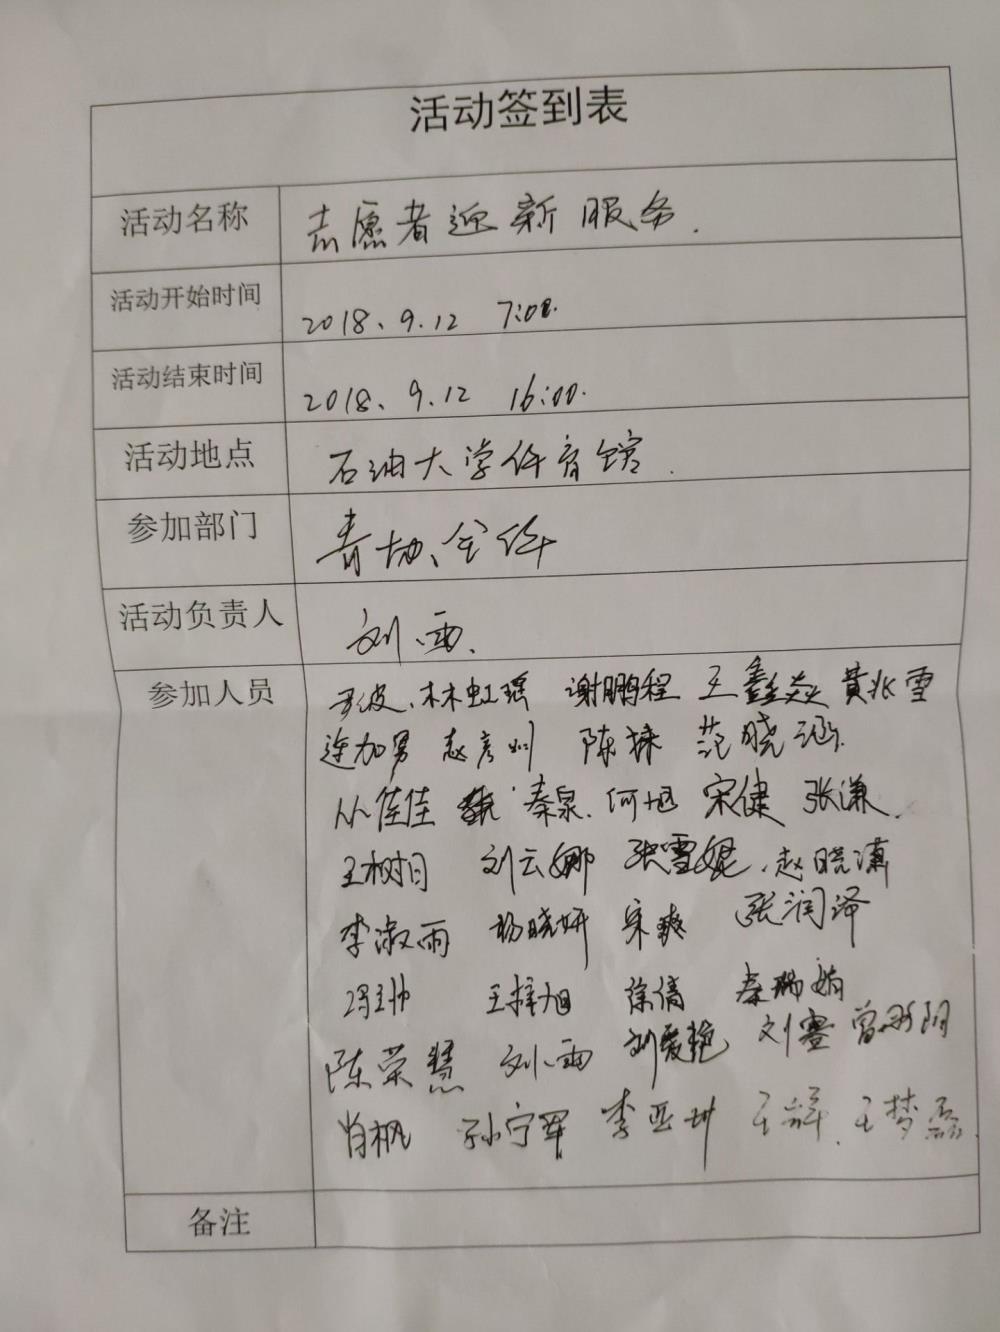 活动签到表
活动名称 志愿者迎新服务.
活动开始时间 2018、9.12 7:00.
活动结束时间 2018、9.12 16:00.
活动地点 石油大学体育馆.
参加部门 青协、全体
活动负责人 刘雨.
参加人员 林虹瑶 谢鹏程 王鑫焱 黄兆雪
连加男 赵彦 陈 范晓涵.
从佳佳 秦泉. 何旭 宋健 张谦.
王树日 刘云娜 张雪娓. 赵晓潇
李淑雨 杨晓妍 宋爽 张润泽
冯帅 王梓旭 徐倩 秦瑞娟
陈荣慧 刘雨 刘爱艳 刘蹇 曾阴
肖枫 孙宁军 李亚 王祥. 王梦磊.
备注